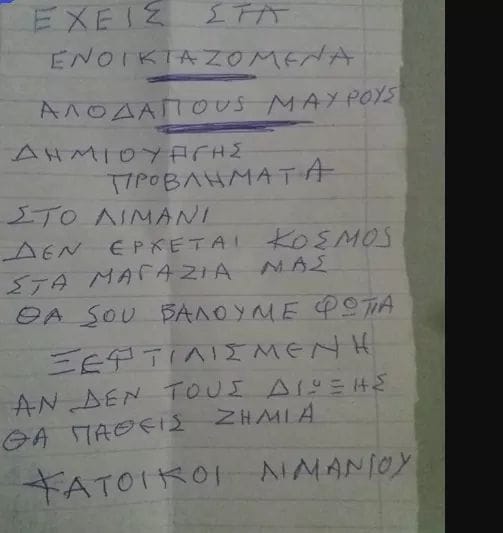 ΕΧΕΙΣ ΣΤΑ
ΕΝΟΙΚΙΑΖΟΜΕΝΑ
ΑΛΟΔΑΠΟUS ΜΑΥΡΟΥΣ
ΔΗΜΙΟΥΡΓΗΣ
ΠΡΟΒΛΗΜΑΤΑ
ΣΤΟ ΛΙΜΑΝΙ
ΔΕΝ ΕΡΧΕΤΑΙ ΚΟΣΜΟS
ΣΤΑ ΜΑΓΑΖΙΑ ΜΑΣ
ΘΑ ΣΟΥ ΒΑΛΟΥΜΕ ΦΩΤΙΑ
ΞΕΦΤΙΛΙΣΜΕΝΗ
ΑΝ ΔΕΝ ΤΟΥΣ ΔΙΩΞΗΣ
ΘΑ ΠΑΘΕΙΣ ΖΗΜΙΑ
ΚΑΤΟΙΚΟΙ ΛΙΜΑΝΙΟΥ